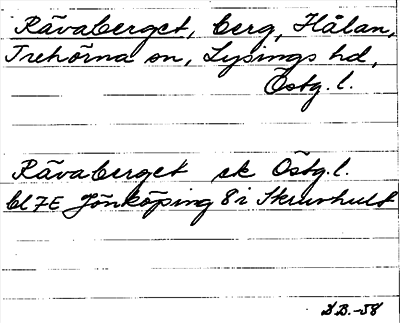 Rävaberget, berg, Hålan,
Trehörna sn, Lysings hd,
Östg. l.
Rävaberget ek Östg. l.
bl 7E Jönköping 8 i Skruvhult